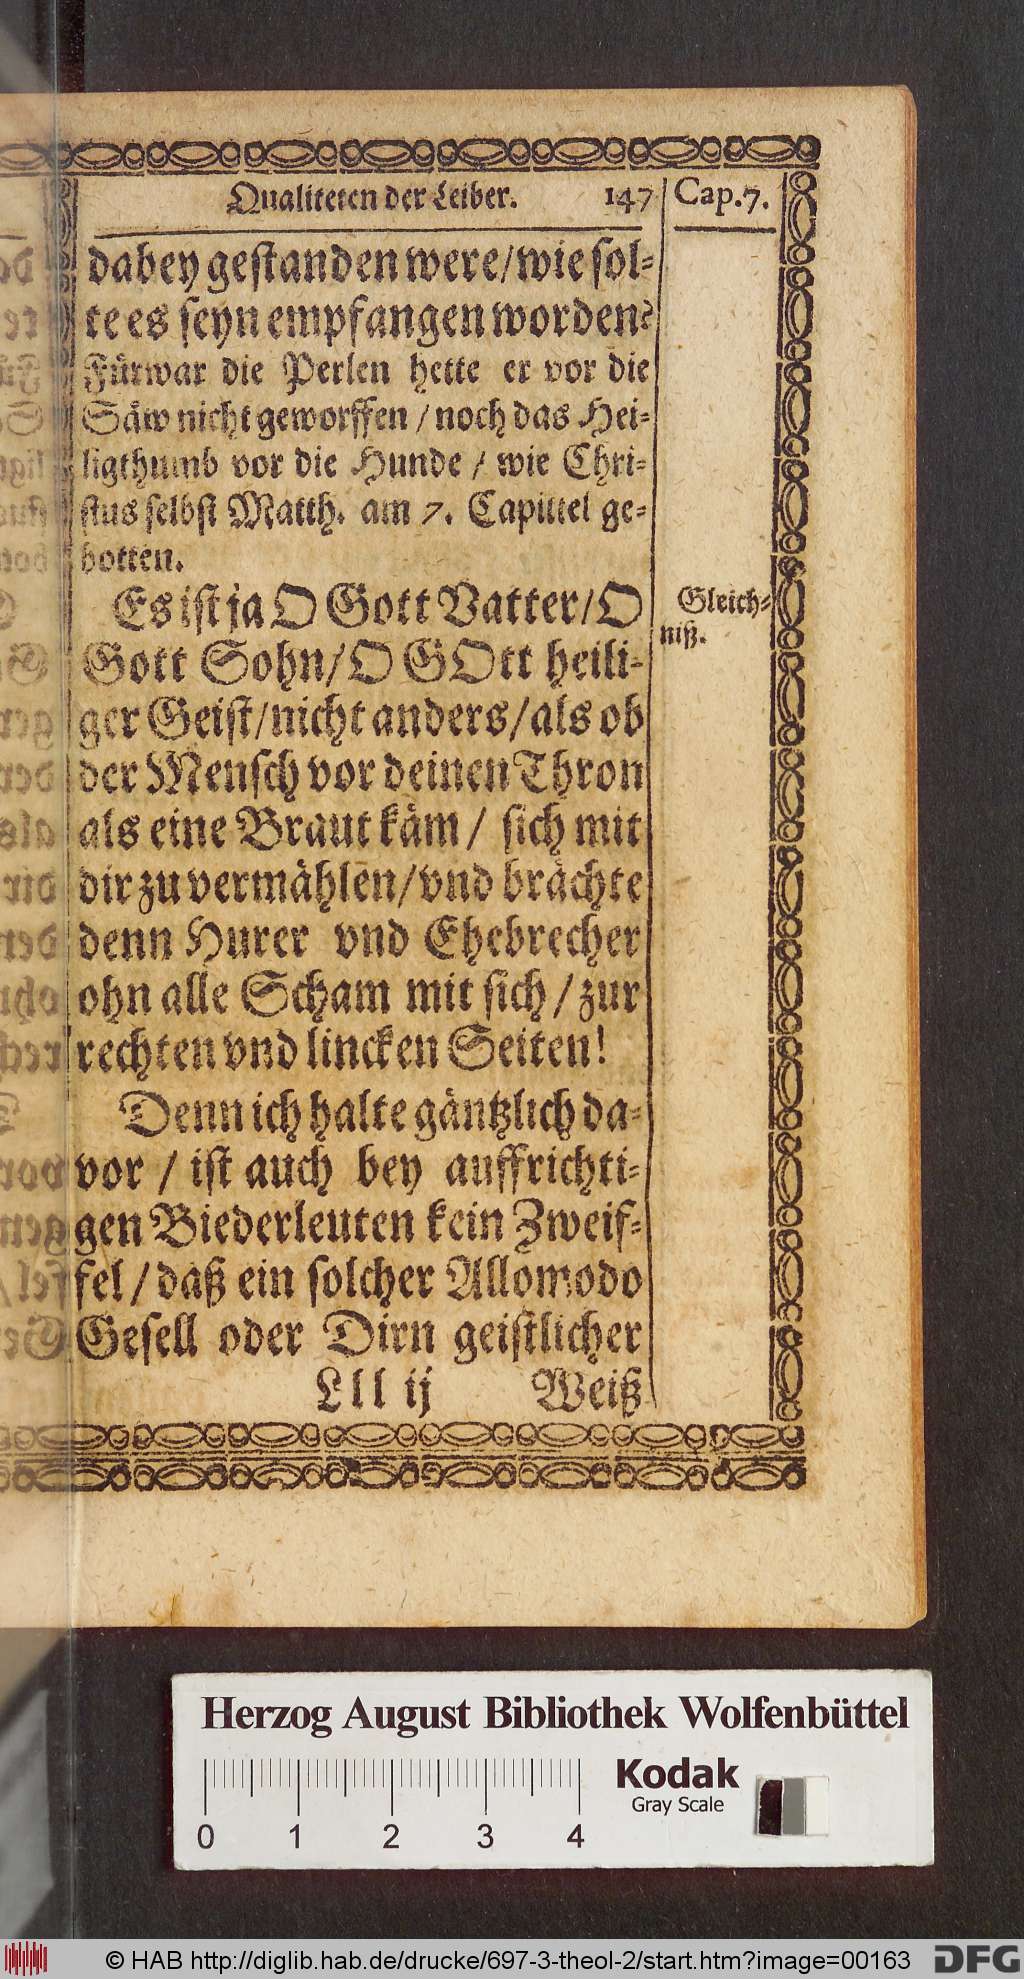 Qualiteten der Leiber. 147 Cap. 7.
dabey gestanden were/wie sol-
te es seyn empfangen worden?
Fürwar die Perlen hette er vor die
Säw nicht geworffen / noch das Hei-
ligthumb vor die Hunde / wie Chri-
stus selbst Matth. am 7. Capittel ge-
botten.
Es ist ja O Gott Vatter/O
Gott Sohn/O GOtt heili-
ger Geist/nicht anders/als ob
der Mensch vor deinen Thron
als eine Braut käm / sich mit
dir zu vermählen/vnd brächte
denn Hurer vnd Ehebrecher
ohn alle Scham mit sich / zur
rechten vnd lincken Seiten!
Gleich-
niß.
Denn ich halte gäntzlich da-
vor / ist auch bey auffrichti-
gen Biederleuten kein Zweif-
fel / daß ein solcher Allomodo
Gesell oder Dirn geistlicher
Lll ij Weiß
Herzog August Bibliothek Wolfenbüttel
Kodak
Gray Scale
0 1 2 3 4
© HAB http://diglib.hab.de/drucke/697-3-theol-2/start.htm?image=00163 DFG